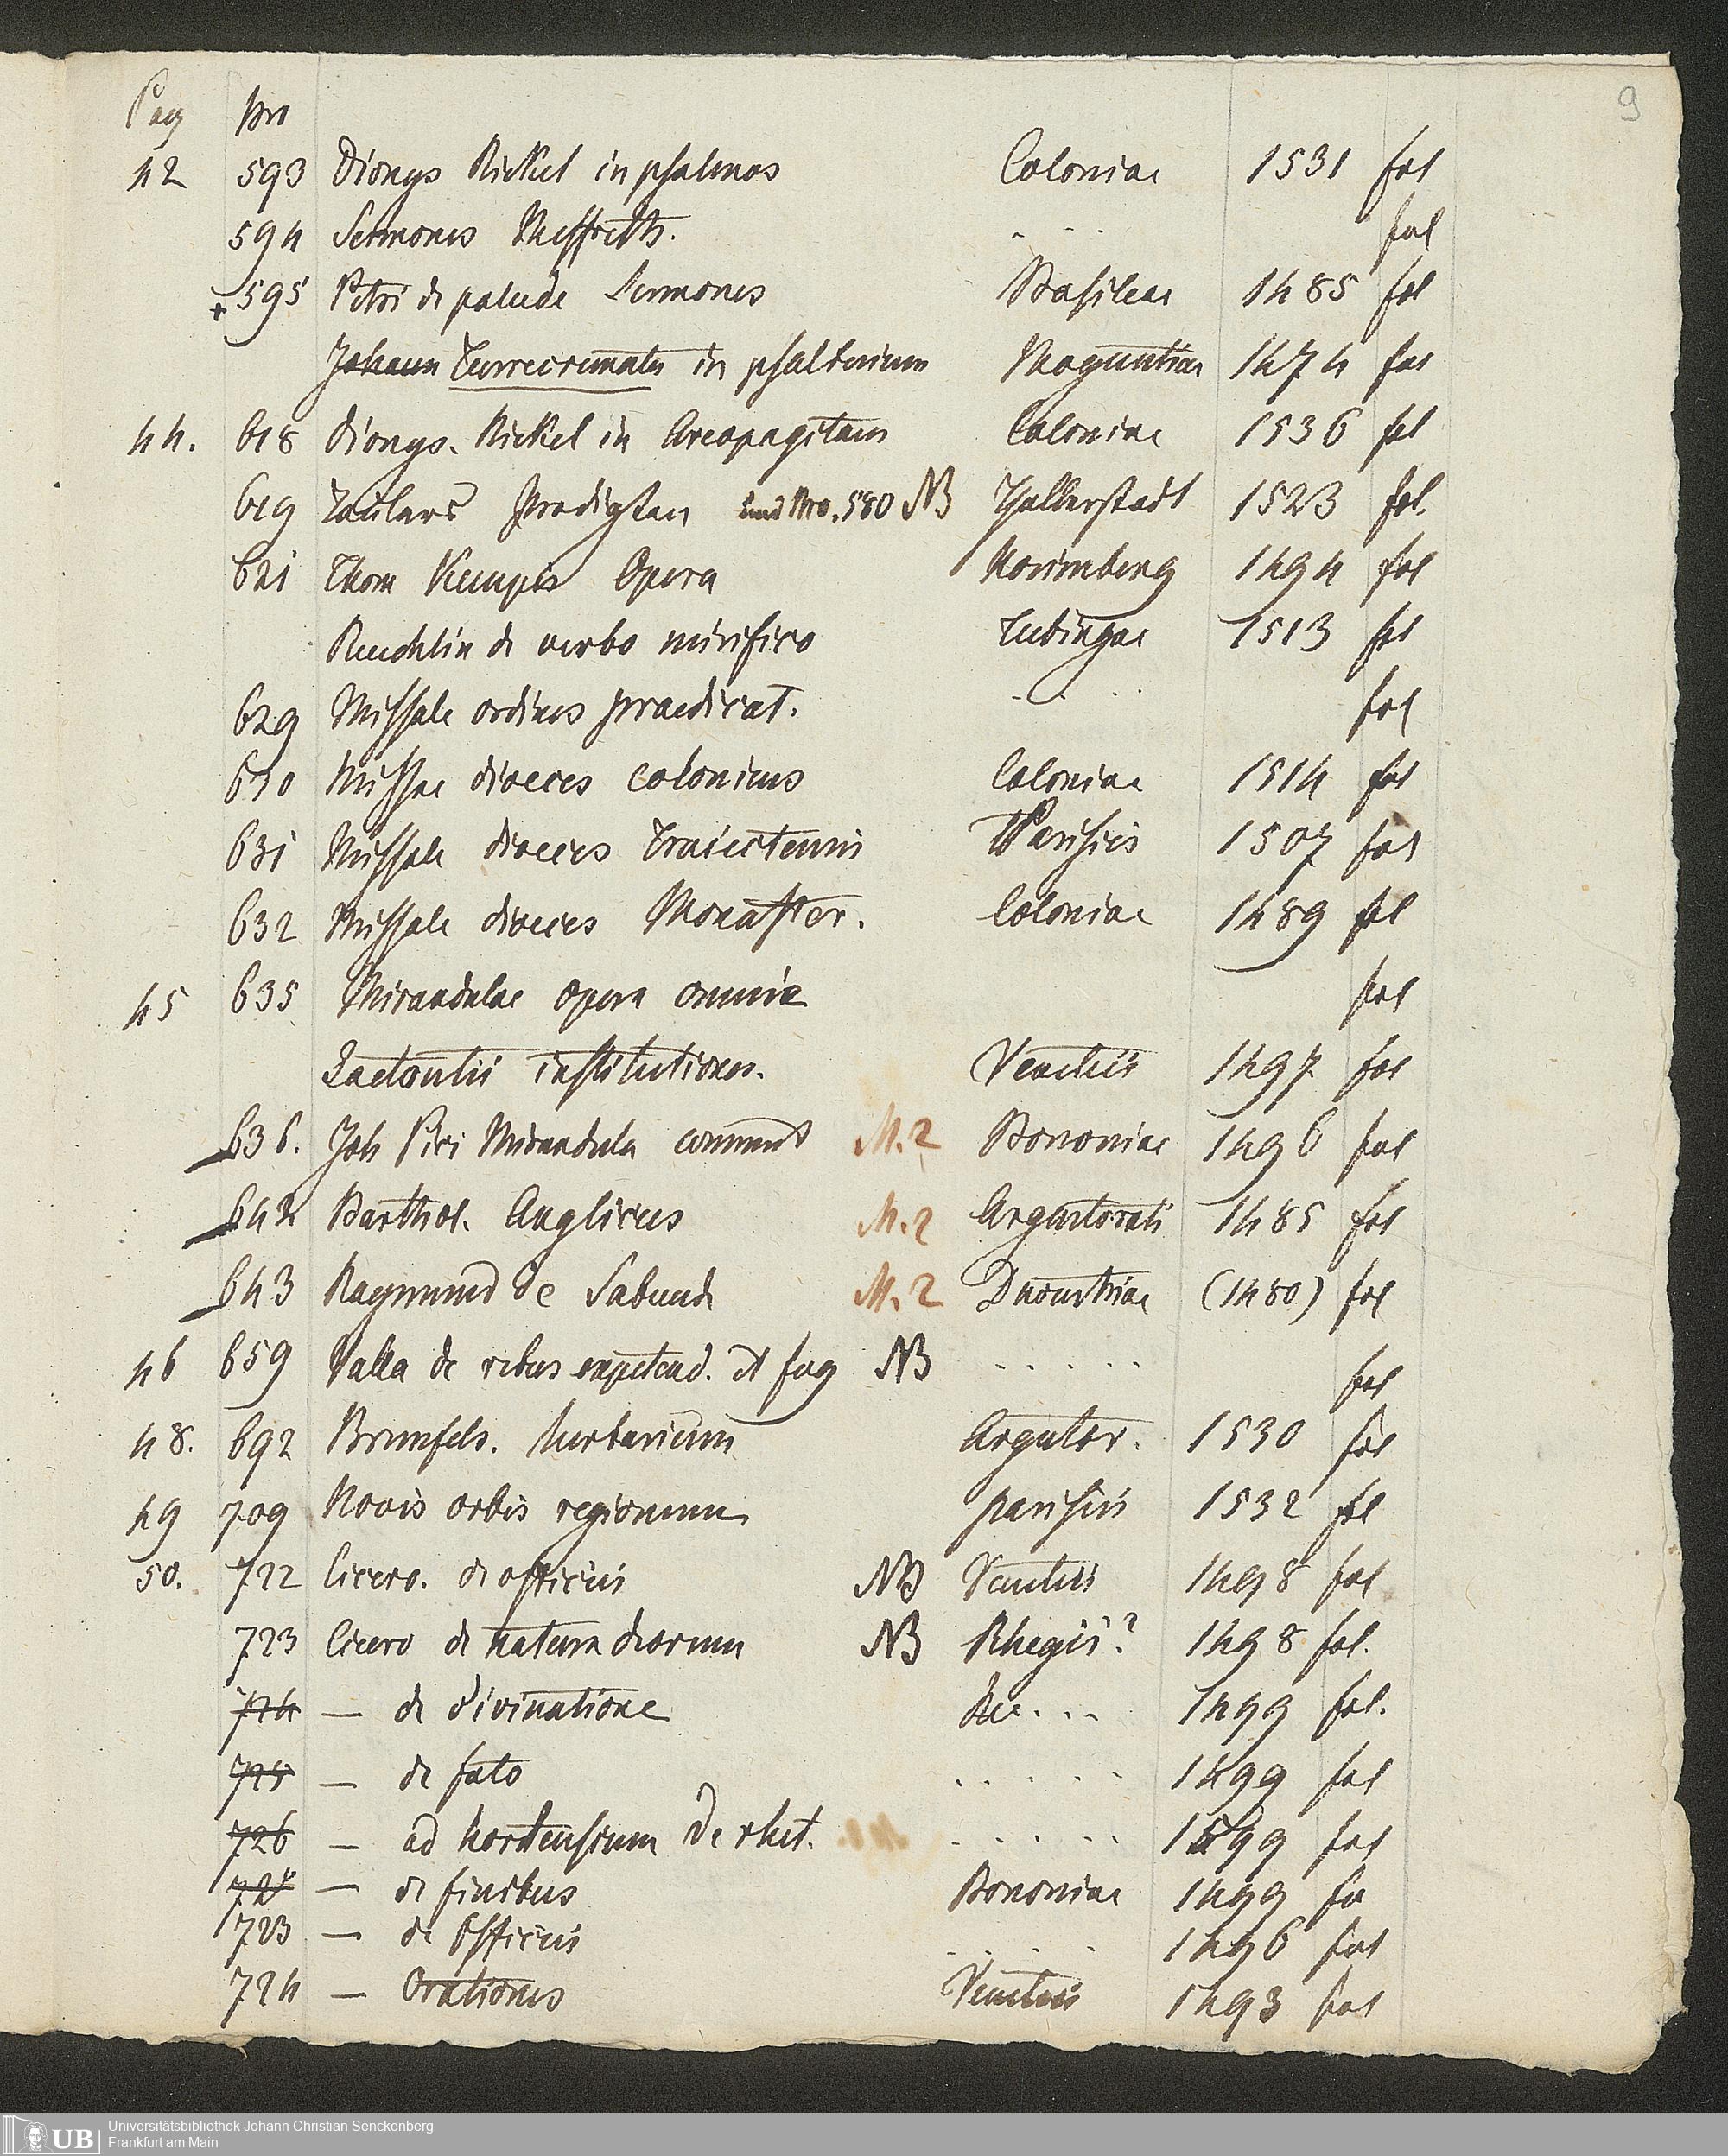 9
Pag Nro
42 593 Dionys Rickel in psalmos Coloniae 1531 fol
594 Sermones Meffreth. . . . fol
+595 Petri de palude Sermones Basileae 1485 fol
Johann Turrecremata in psalterium Moguntiae 1474 fol
44. 618 Dionys. Rickel in Areopagitam Coloniae 1536 fol
619 Taulers Predigten sind Nro. 580 NB Halberstadt 1523 fol.
621 Thom Kempis Opera Norimberg 1494 fol
Reuchlin de verbo mirifico Tubingae 1513 fol
629 Missale ordines praedicat. . . . fol
630 Missae dioeces colonicus Coloniae 1514 fol
631 Missale dioeces Traiectensis Parisiis 1507 fol
632 Missale dioeces Monaster. Coloniae 1489 fol
45 635 Mirandulae opera omnia fol
Lactantii institutiones. Venetiis 1497 fol
636. Joh Pici Mirandula comment M. 2 Bononiae 1496 fol
642 Barthol. Anglicus M. 2 Argentorati 1485 fol
643 Raymund de Sabunde M. 2 Daventriae (1480) fol
46 659 Valla de rebus expetend. et fug NB . . . . . . fol
48. 692 Brunfels. herbarium Argentor. 1530 fol
49 709 Novis orbis regionum parisiis 1532 fol
50. 722 Cicero. de officiis NB Venetiis 1498 fol
723 Cicero de natura deorum NB Rhegii? 1498 fol.
724 — de divinatione . . . 1499 fol.
725 — de fato . . . . . . 1499 fol
726 — ad hortensium de rhet. . . . . . . 1499 fol
727 — de finibus Bononiae 1499 fo
723 — de Officiis . . . . 1496 fol
724 — Orationes Venetiis 1493 fol
UB Universitätsbibliothek Johann Christian Senckenberg
Frankfurt am Main